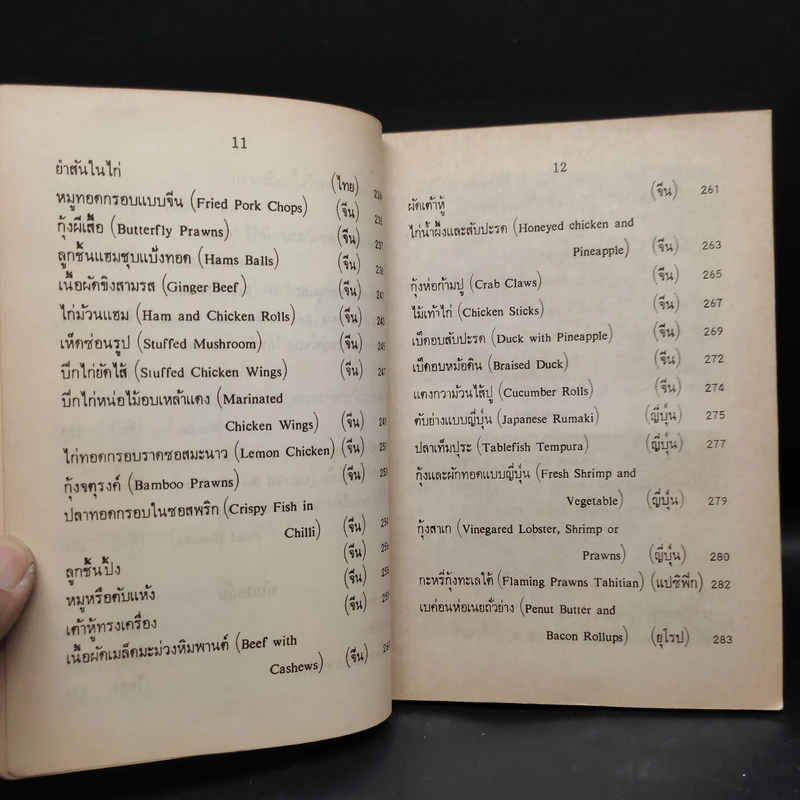 11
ยำสันในไก่ (ไทย) 234
หมูทอดกรอบแบบจีน (Fried Pork Chops) (จีน) 235
กุ้งผีเสื้อ (Butterfly Prawns) (จีน) 237
ลูกชิ้นแฮมชุบแป้งทอด (Hams Balls) (จีน)
เนื้อผัดขิงสามรส (Ginger Beef) (จีน) 241
ไก่ม้วนแฮม (Ham and Chicken Rolls) (จีน) 243
เห็ดซ่อนรูป (Stuffed Mushroom) (จีน) 245
ปีกไก่ยัดไส้ (Stuffed Chicken Wings) (จีน) 247
ปีกไก่หน่อไม้อบเหล้าแดง (Marinated
Chicken Wings) (จีน) 249
ไก่ทอดกรอบราดซอสมะนาว (Lemon Chicken) (จีน)
กุ้งจตุรงค์ (Bamboo Prawns) (จีน)
ปลาทอดกรอบในซอสพริก (Crispy Fish in
Chilli) (จีน) 254
ลูกชิ้นปิ้ง (จีน) 256
หมูหรือตับแห้ง (จีน) 258
เต้าหู้ทรงเครื่อง (จีน) 259
เนื้อผัดเมล็ดมะม่วงหิมพานต์ (Beef with
Cashews) (จีน) 260
12
ผัดเต้าหู้ (จีน) 261
ไก่น้ำผึ้งและสับปะรด (Honeyed chicken and
Pineapple) (จีน) 263
กุ้งห่อก้ามปู (Crab Claws) (จีน) 265
ไม้เท้าไก่ (Chicken Sticks) (จีน) 267
เป็ดอบสับปะรด (Duck with Pineapple) (จีน) 269
เป็ดอบหม้อดิน (Braised Duck) (จีน) 272
แตงกวาม้วนไส้ปู (Cucumber Rolls) (จีน) 274
ตับย่างแบบญี่ปุ่น (Japanese Rumaki) (ญี่ปุ่น) 275
ปลาเท็มปุระ (Tablefish Tempura) (ญี่ปุ่น) 277
กุ้งและผักทอดแบบญี่ปุ่น (Fresh Shrimp and
Vegetable) (ญี่ปุ่น) 279
กุ้งสาเก (Vinegared Lobster, Shrimp or
Prawns) (ญี่ปุ่น) 280
กะหรี่กุ้งทะเลใต้ (Flaming Prawns Tahitian) (แปซิฟิก) 282
เบค่อนห่อเนยถั่วย่าง (Penut Butter and
Bacon Rollups) (ยุโรป) 283